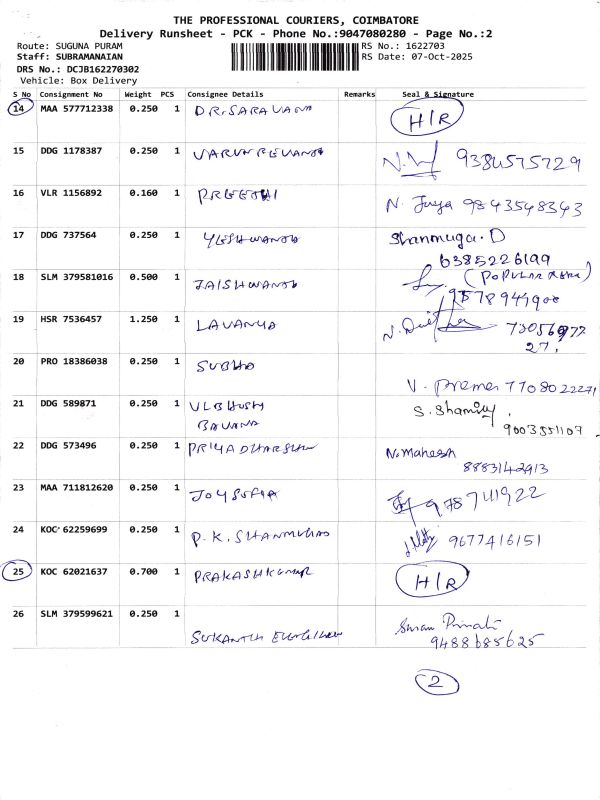 THE PROFESSIONAL COURIERS, COIMBATORE
Delivery Runsheet - PCK - Phone No.:9047080280 - Page No.:2
Route: SUGUNA PURAM
Staff: SUBRAMANAIAN
DRS No.: DCJB162270302
Vehicle: Box Delivery
RS No.: 1622703
RS Date: 07-Oct-2025
S No Consignment No Weight PCS Consignee Details Remarks Seal & Signature
14 MAA 577712338 0.250 1 DR.SARAVANA H/R
15 DDG 1178387 0.250 1 VARUN 9384575729
16 VLR 1156892 0.160 1 PREETHI N. Jaya 9843548343
17 DDG 737564 0.250 1 YESHWANTH Shanmuga.D
6385226199
18 SLM 379581016 0.500 1 JAISHWANTH (POPULAR
19 HSR 7536457 1.250 1 LAVANYA
27.
20 PRO 18386038 0.250 1 SUBHA
V. Prema 7708022271
21 DDG 589871 0.250 1 VLBHUSH S.
BAVANA 9003551107
22 DDG 573496 0.250 1 PRIYADHARSHINI N.Mahesh
8883142913
23 MAA 711812620 0.250 1 JOYSOFIA
24 KOC 62259699 0.250 1 P.K.SHANMUGAM 9677416151
25 KOC 62021637 0.700 1 PRAKASHKUMAR H/R
26 SLM 379599621 0.250 1
SUKANTH 9488685625
2